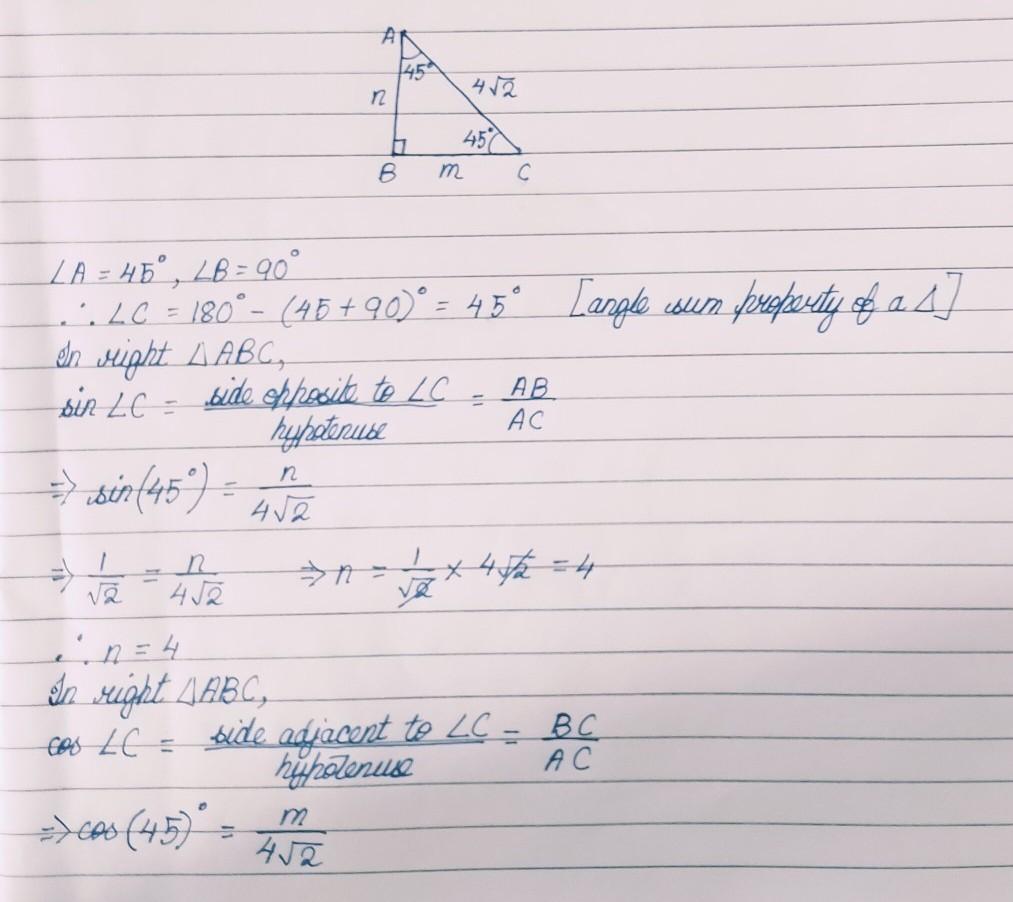 A
45°
n
4√2
45°
B m C
∠A = 45°, ∠B = 90°
∴ ∠C = 180° - (45 + 90)° = 45° [angle sum property of a Δ]
In right ΔABC,
sin ∠C = side opposite to ∠C / hypotenuse = AB / AC
⇒ sin(45°) = n / 4√2
⇒ 1 / √2 = n / 4√2 ⇒ n = 1 / √2 × 4√2 = 4
∴ n = 4
In right ΔABC,
cos ∠C = side adjacent to ∠C / hypotenuse = BC / AC
⇒ cos(45)° = m / 4√2